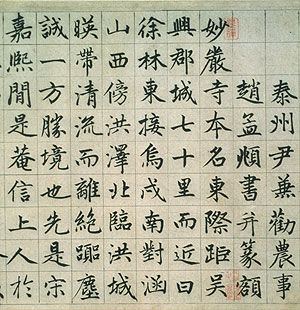 泰州尹兼勸農事
趙孟頫書并篆額
妙嚴寺本名東際距吳
興郡城七十里而近曰
徐林東接烏戍南對涵
山西傍洪澤北臨洪城
暎帶清流而離絕囂塵
誠一方勝境也先是宋
嘉熙間是菴信上人於